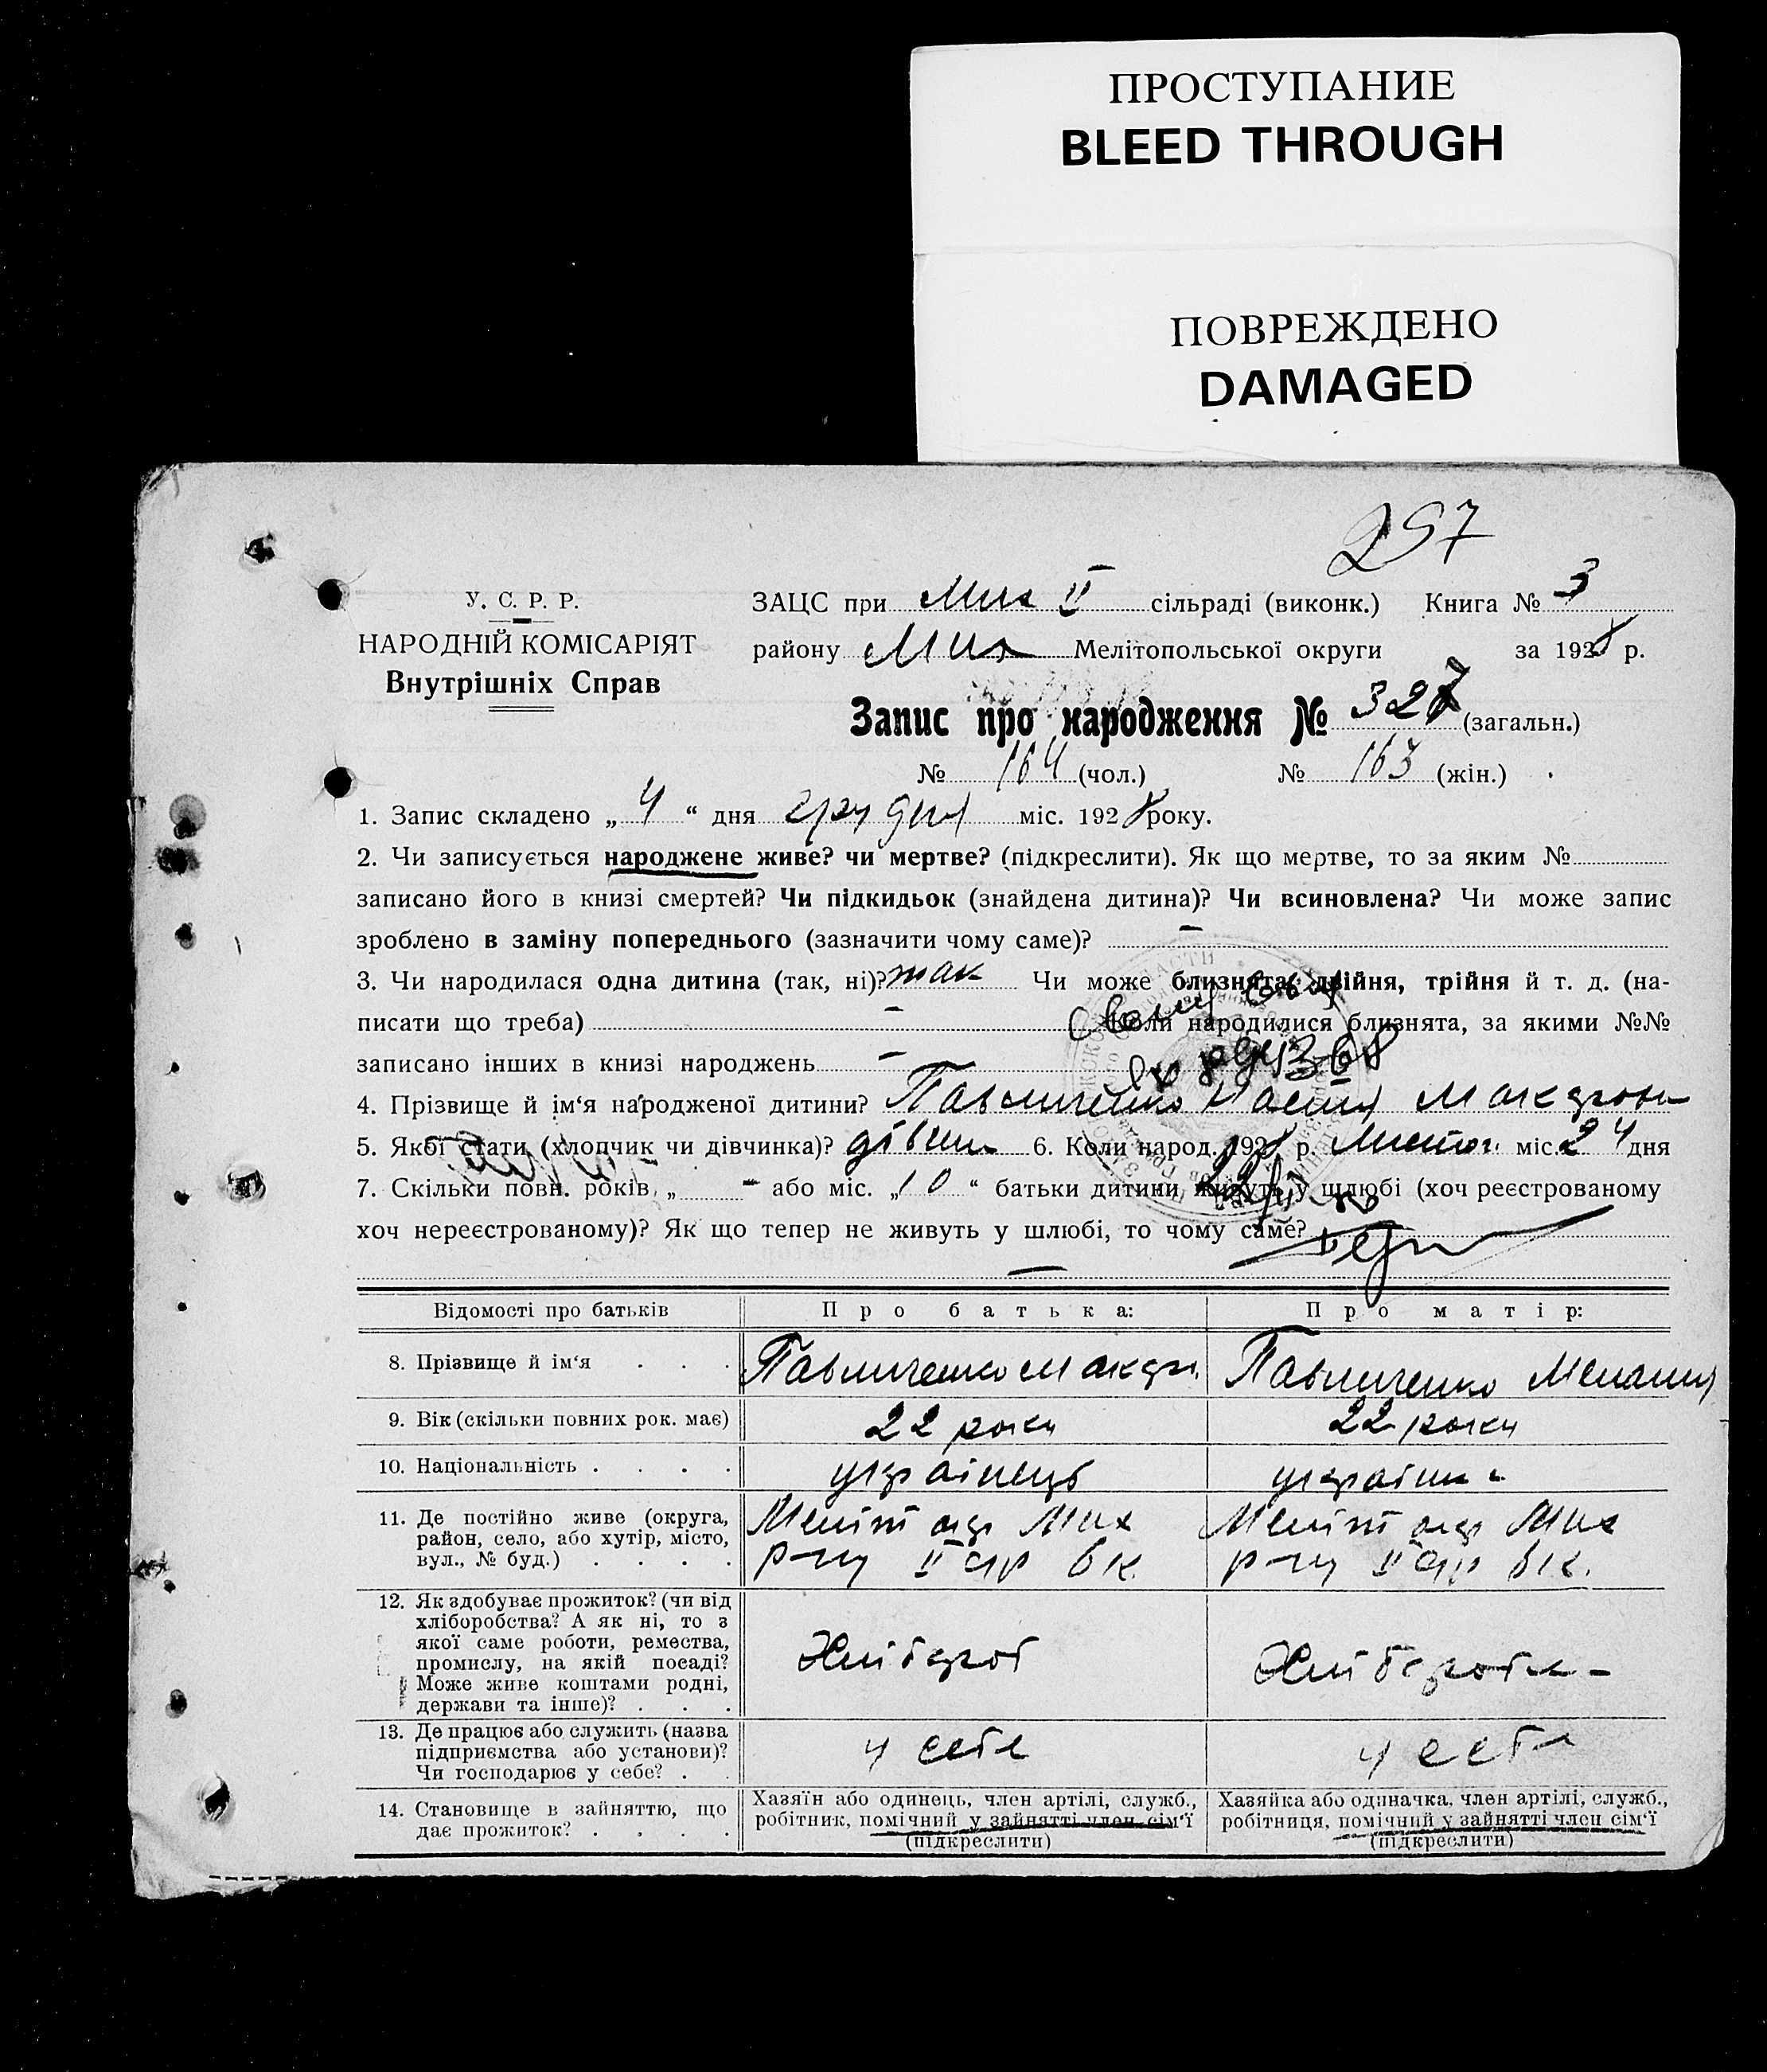 ПРОСТУПАНИЕ
BLEED THROUGH
ПОВРЕЖДЕНО
DAMAGED
297
У. С. Р. Р.
НАРОДНІЙ КОМІСАРІЯТ
Внутрішніх Справ
ЗАЦС при Мих II сільраді (виконк.) Книга № 3
району Мих Мелітопольської округи за 1928 р.
Запис про народження № 327 (загальн.)
№ 164 (чол.) № 163 (жін.)
1. Запис складено „ 4 “ дня грудня міс. 1928 року.
2. Чи записується народжене живе? чи мертве? (підкреслити). Як що мертве, то за яким №
записано його в книзі смертей? Чи підкидьок (знайдена дитина)? Чи всиновлена? Чи може запис
зроблено в заміну попереднього (зазначити чому саме)? –
3. Чи народилася одна дитина (так, ні)? так Чи може близнята, двійня, трійня й т. д. (на-
писати що треба) – Коли народилися близнята, за якими №№
записано інших в книзі народжень –
4. Прізвище й ім‘я народженої дитини? Павличенко Настя Макаров
5. Якої стати (хлопчик чи дівчинка)? дівчин 6. Коли народ. 1928 р. Листоп. міс. 24 дня
7. Скільки повн. років „ – або міс. „ 10 “ батьки дитини живуть у шлюбі (хоч реєстрованому
хоч нереєстрованому)? Як що тепер не живуть у шлюбі, то чому саме?
–
Відомості про батьків Про батька: Про матір:
8. Прізвище й ім‘я . . . Павличенко Макар. Павличенко Меланія
9. Вік (скільки повних рок. має) 22 роки 22 роки
10. Національність . . . . українець українк
11. Де постійно живе (округа,
район, село, або хутір, місто,
вул., № буд.) . . . .
Меліт окр Мих Меліт окр Мих
р-ну II вк р-ну II вк.
12. Як здобуває прожиток? (чи від
хліборобства? А як ні, то з
якої саме роботи, ремества,
промислу, на якій посаді?
Може живе коштами родні,
держави та інше)? . . .
Хлібороб Хлібороб
13. Де працює або служить (назва
підприємства або установи)?
Чи господарює у себе? . .
у себе у себе
14. Становище в зайняттю, що
дає прожиток? . . . .
Хазяїн або одинець, член артілі, служб.,
робітник, помічний у зайнятті член сім‘ї
(підкреслити)
Хазяйка або одиначка, член артілі, служб.,
робітниця, помічний у зайнятті член сім‘ї
(підкреслити)